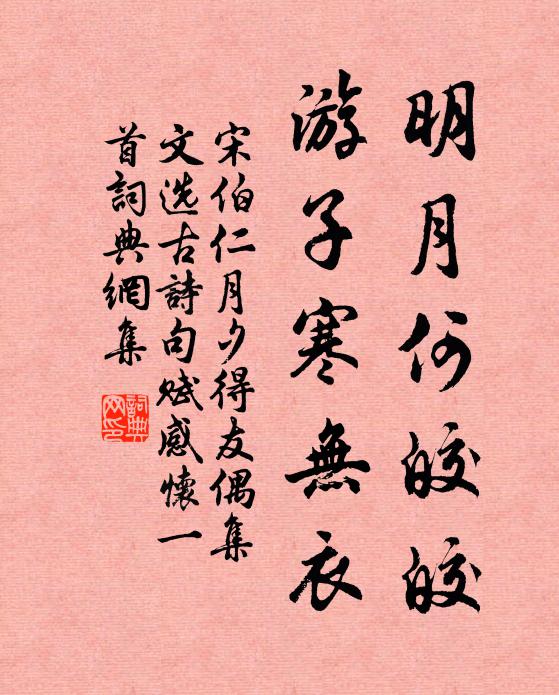 明月何皎皎
游子寒無衣
宋伯仁月夕得友偶集
文选古詩句赋感懷一
首詞典網集
詞典网印